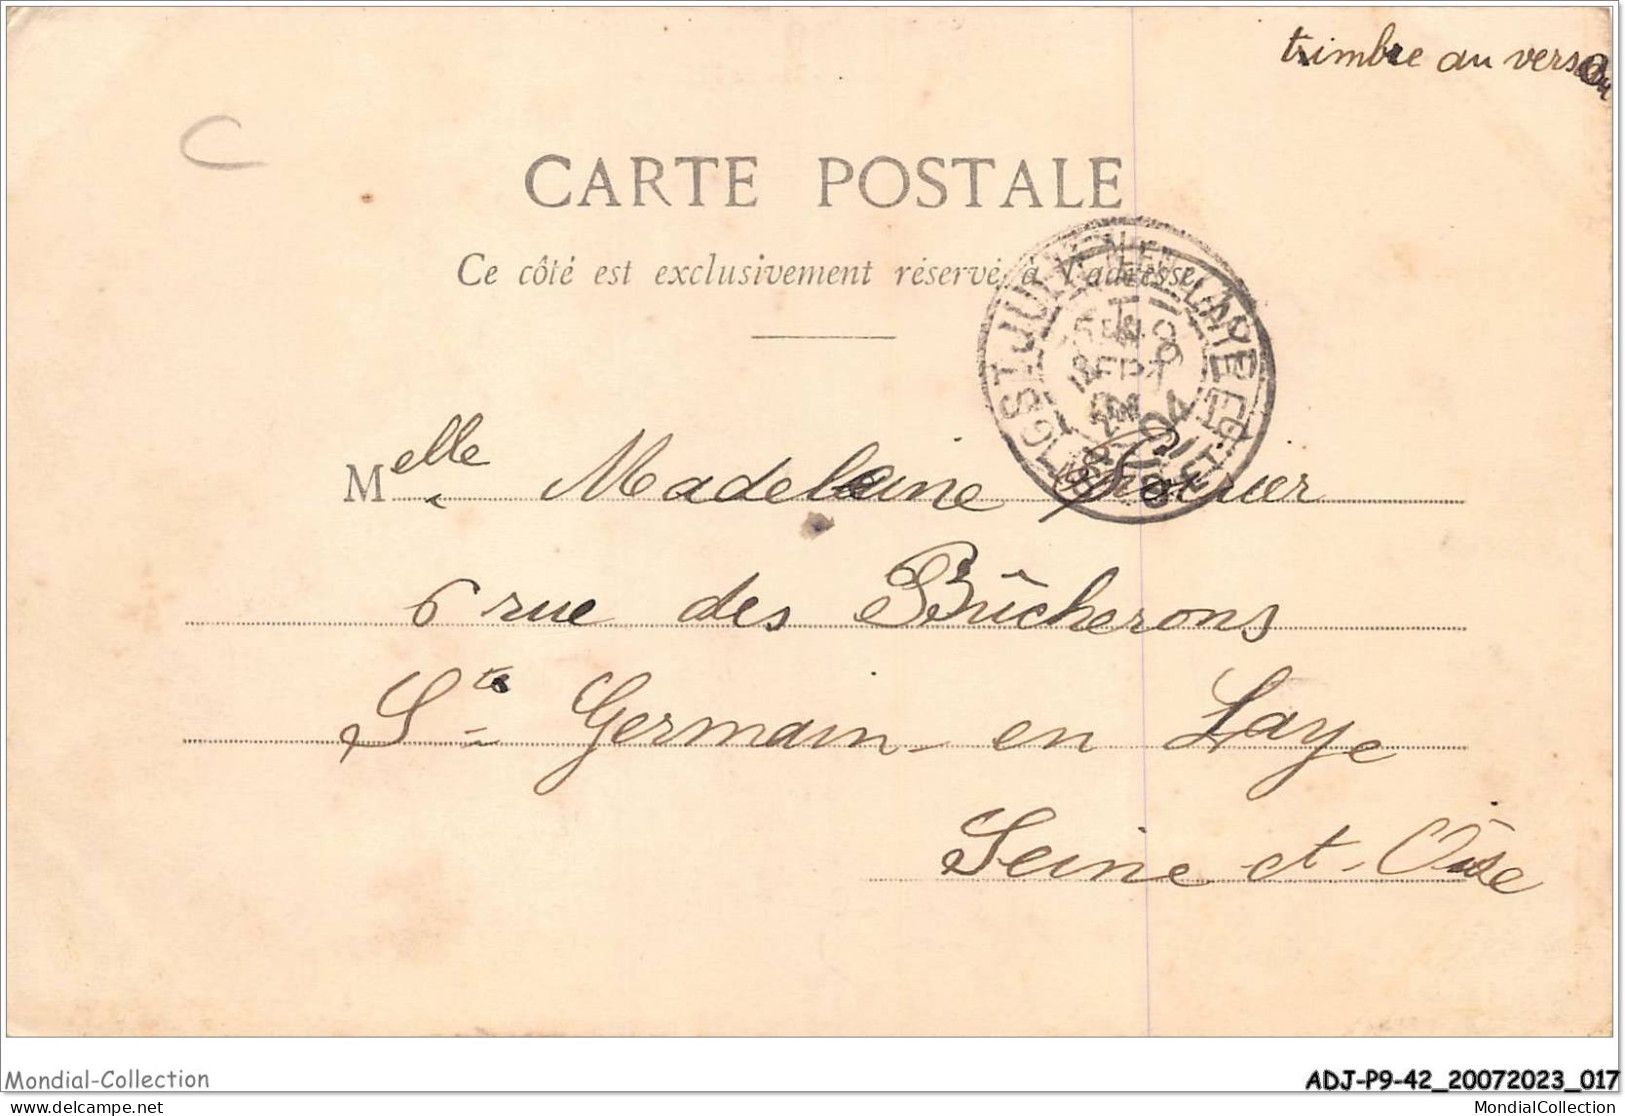 timbre au verso
C
CARTE POSTALE
Ce côté est exclusivement réservé à l'adresse
Melle Madeleine
6 rue des Bûcherons
St Germain en Laye
Seine et Oise
Mondial-Collection
ADJ-P9-42_20072023_017
delcampe.net
MondialCollection